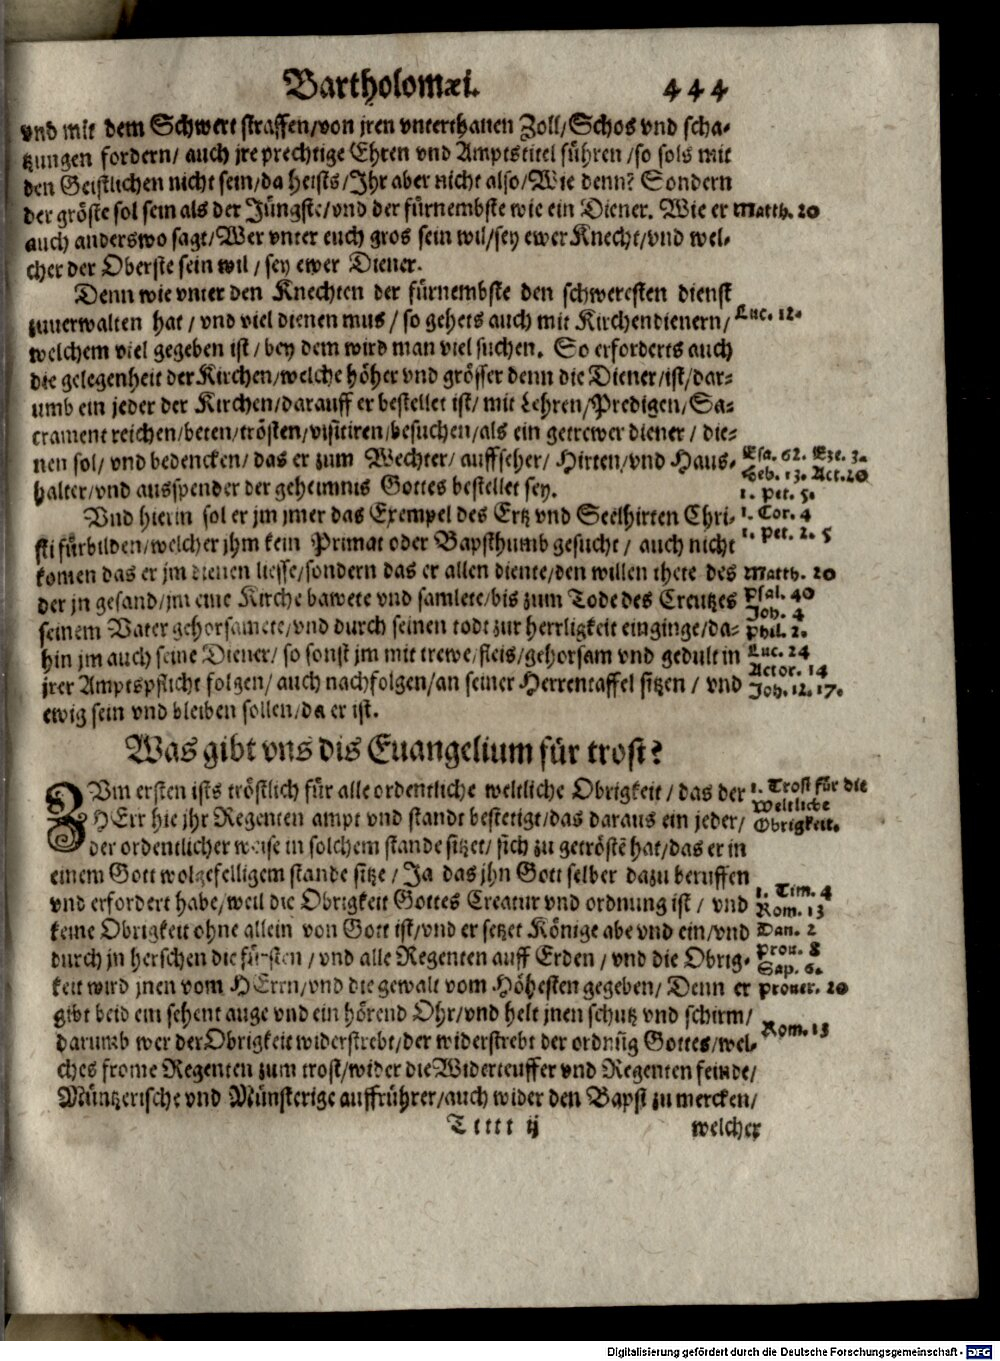 Bartholomæi. 444
vnd mit dem Schwert straffen/von jren vnterthanen Zoll/Schos vnd scha-
tzungen fordern/ auch jre prechtige Ehren vnd Amptstitel führen /so sols mit
den Geistlichen nicht sein/da heists/Ihr aber nicht also/Wie denn? Sondern
der gröste sol sein als der Jüngste/vnd der fürnembste wie ein Diener. Wie er Matth. 20
auch anderswo sagt/Wer vnter euch gros sein wil/sey ewer Knecht/vnd wel-
cher der Oberste sein wil / sey ewer Diener.
Denn wie vnter den Knechten der fürnembste den schweresten dienst
zuuerwalten hat / vnd viel dienen mus / so gehets auch mit Kirchendienern/ Luc. 12.
welchem viel gegeben ist / bey dem wird man viel suchen. So erforderts auch
die gelegenheit der Kirchen/welche höher vnd grösser denn die Diener/ist/dar-
umb ein jeder der Kirchen/darauff er bestellet ist/ mit Lehren/Predigen/Sa-
crament reichen/beten/trösten/visitiren/besuchen/als ein getrewer diener / die-
nen sol/ vnd bedencken/ das er zum Wechter/ auffseher/ Hirten/vnd Haus- Esa. 62. Eze. 3.
halter/vnd ausspender der geheimnis Gottes bestellet sey. Heb. 13. Act. 20
1. Pet. 5.
Vnd hierin sol er jm jmer das Exempel des Ertz vnd Seelhirten Chri- 1. Cor. 4
sti fürbilden/welcher jhm kein Primat oder Bapsthumb gesucht / auch nicht 1. Pet. 2. 5
komen das er jm dienen liesse/sondern das er allen diente/den willen thete des Matth. 20
der jn gesand/jm eine Kirche bawete vnd samlete/bis zum Tode des Creutzes Psal. 40
Joh. 4
seinem Vater gehorsamete/vnd durch seinen todt zur herrligkeit einginge/da- Phil. 2.
hin jm auch seine Diener/ so sonst jm mit trewe/fleis/gehorsam vnd gedult in Luc. 24
Actor. 14
jrer Amptspflicht folgen/ auch nachfolgen/an seiner Herrentaffel sitzen / vnd Joh. 12. 17.
ewig sein vnd bleiben sollen/da er ist.
Was gibt vns dis Euangelium für trost?
ZVm ersten ists tröstlich für alle ordentliche weltliche Obrigkeit / das der 1. Trost für die
Weltliche
HErr hie jhr Regenten ampt vnd standt bestetigt/das daraus ein jeder/ Obrigkeit.
der ordentlicher weise in solchem stande sitzet/ sich zu getröstē hat/das er in
einem Gott wolgefelligem stande sitze / Ja das jhn Gott selber dazu beruffen
vnd erfordert habe/weil die Obrigkeit Gottes Creatur vnd ordnung ist / vnd 1. Tim. 4
Rom. 13
keine Obrigkeit ohne allein von Gott ist/vnd er setzet Könige abe vnd ein/vnd Dan. 2
durch jn herschen die fürsten / vnd alle Regenten auff Erden / vnd die Obrig- Prou. 8
Sap. 6.
keit wird jnen vom HErrn/vnd die gewalt vom Höhesten gegeben/ Denn er Prouer. 20
gibt beid ein sehent auge vnd ein hörend Ohr/vnd helt jnen schutz vnd schirm/
darumb wer der Obrigkeit widerstrebt/der widerstrebt der ordnūg Gottes/wel- Rom. 13
ches frome Regenten zum trost/wider die Widerteuffer vnd Regenten feinde/
Müntzerische vnd Münsterige auffrührer/auch wider den Bapst zu mercken/
Tttt ij welcher
Digitalisierung gefördert durch die Deutsche Forschungsgemeinschaft - DFG